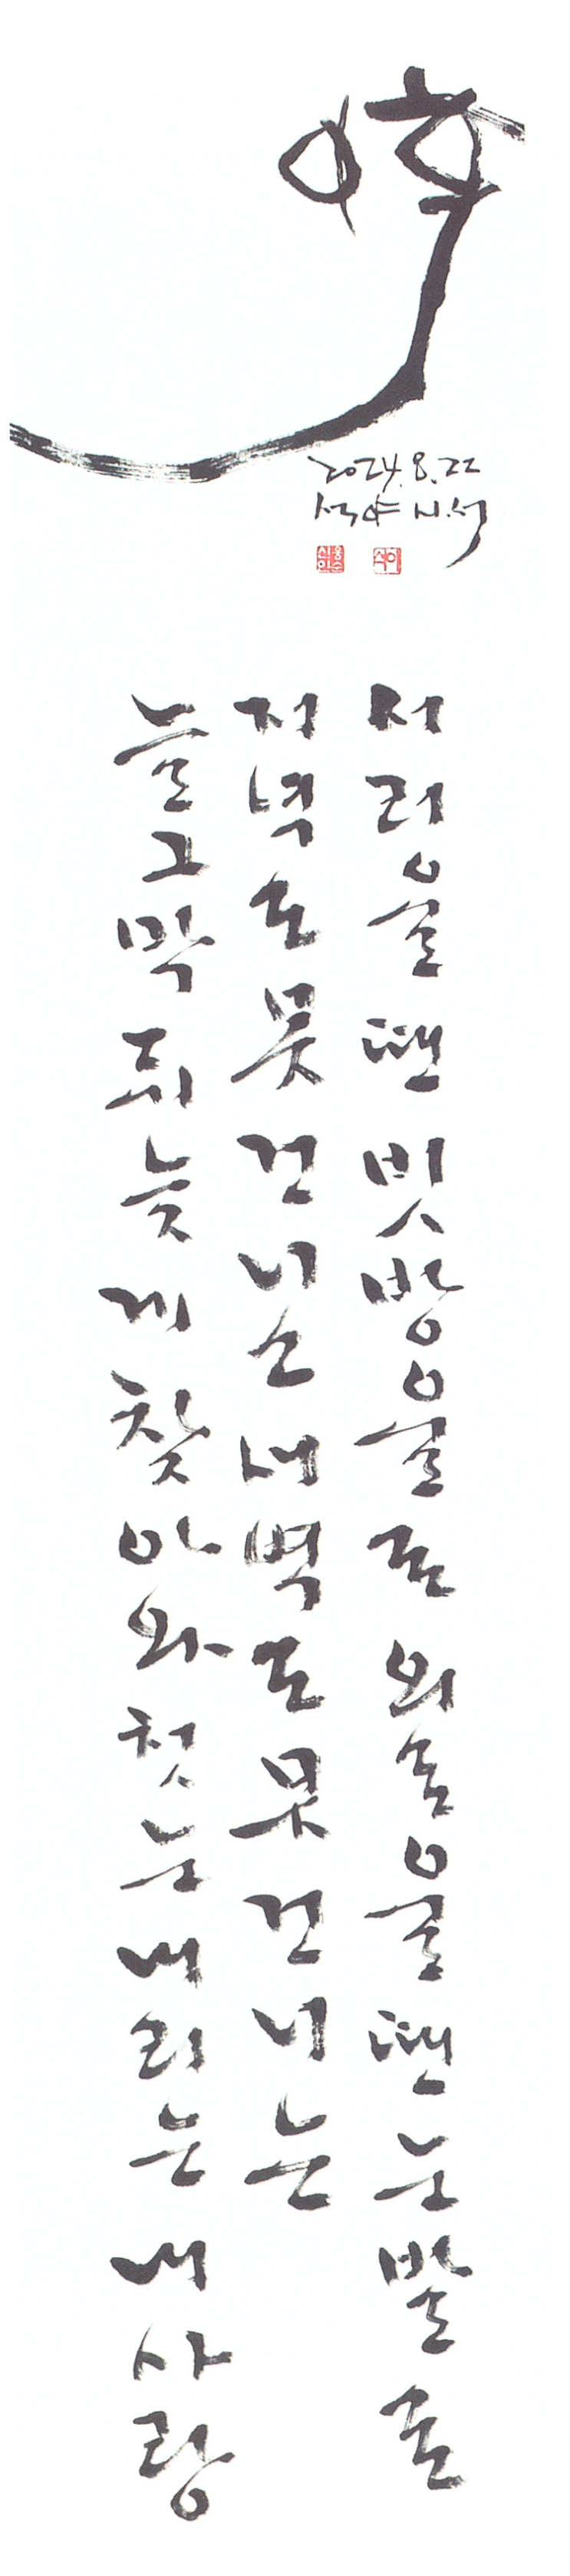 2024.8.22
석야 시.서
서러울 땐 빗방울로 외로울 땐 눈발로
저녁도 못 건너는 새벽도 못 건너는
늘그막 뒤늦게 찾아와 첫눈 내리는 내 사랑